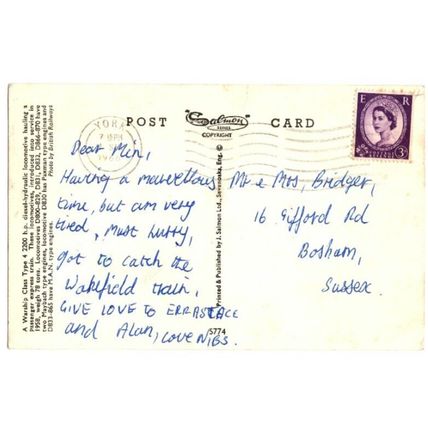 A Warship Class Type 4 2200 h.p. diesel-hydraulic locomotive hauling a
passenger express train. These locomotives, introduced into service in
1958, weigh 78 tons. Locomotives D800-829, D831, D832, D866-870 have
two Maybach type engines, locomotive D830 has Paxman type engines and
D833-865 have M.A.N. type engines. Photo by British Railways
YORK
7
POST Salmon CARD
SERIES
COPYRIGHT
E R
POSTAGE REVENUE
3D
Dear Min,
Having a marvellous
time, but am very
tired, Must hurry,
got to catch the
Wakefield train,
GIVE LOVE TO
and Alan, LOVE NIBS.
Printed & Published by J. Salmon Ltd., Sevenoaks, Eng. ©
5774
Mr & Mrs, Bridger,
16 Gifford Rd
Bosham,
Sussex.